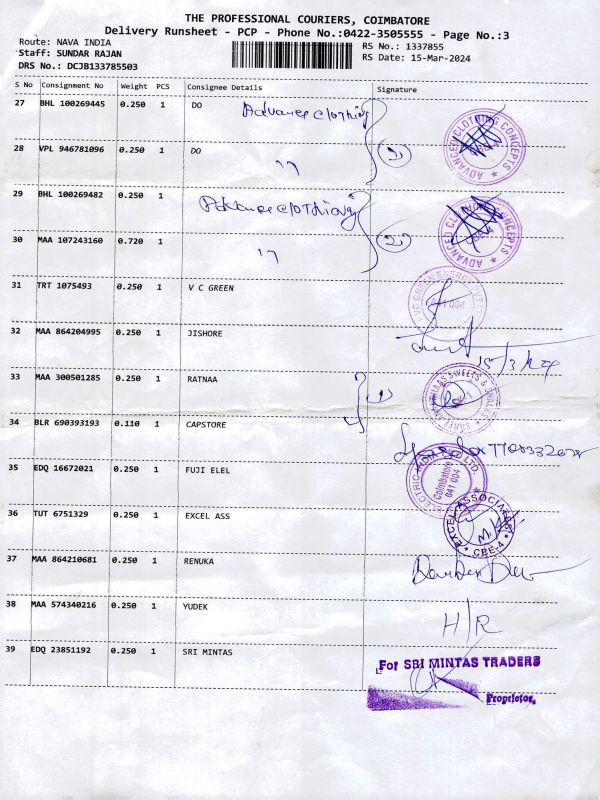 THE PROFESSIONAL COURIERS, COIMBATORE
Delivery Runsheet - PCP - Phone No.:0422-3505555 - Page No.:3
Route: NAVA INDIA
Staff: SUNDAR RAJAN
DRS No.: DCJB133785503
RS No.: 1337855
RS Date: 15-Mar-2024
S No Consignment No Weight PCS Consignee Details Signature
27 BHL 100269445 0.250 1 DO Advance clothing
ADVANCED CLOTHING CONCEPTS
28 VPL 946781096 0.250 1 DO 11 2
29 BHL 100269482 0.250 1 Advance clothing
ADVANCED CLOTHING CONCEPTS
30 MAA 107243160 0.720 1 11 2
31 TRT 1075493 0.250 1 V C GREEN
32 MAA 864204995 0.250 1 JISHORE
15/3/24
33 MAA 300501285 0.250 1 RATNAA 1
34 BLR 690393193 0.110 1 CAPSTORE
35 EDQ 16672021 0.250 1 FUJI ELEL
Coimbatore
641 004
36 TUT 6751329 0.250 1 EXCEL ASS
EXCEL ASSOCIATES
CBE-4
37 MAA 864210681 0.250 1 RENUKA
38 MAA 574340216 0.250 1 YUDEK H/R
39 EDQ 23851192 0.250 1 SRI MINTAS
For SRI MINTAS TRADERS
Proprietor.